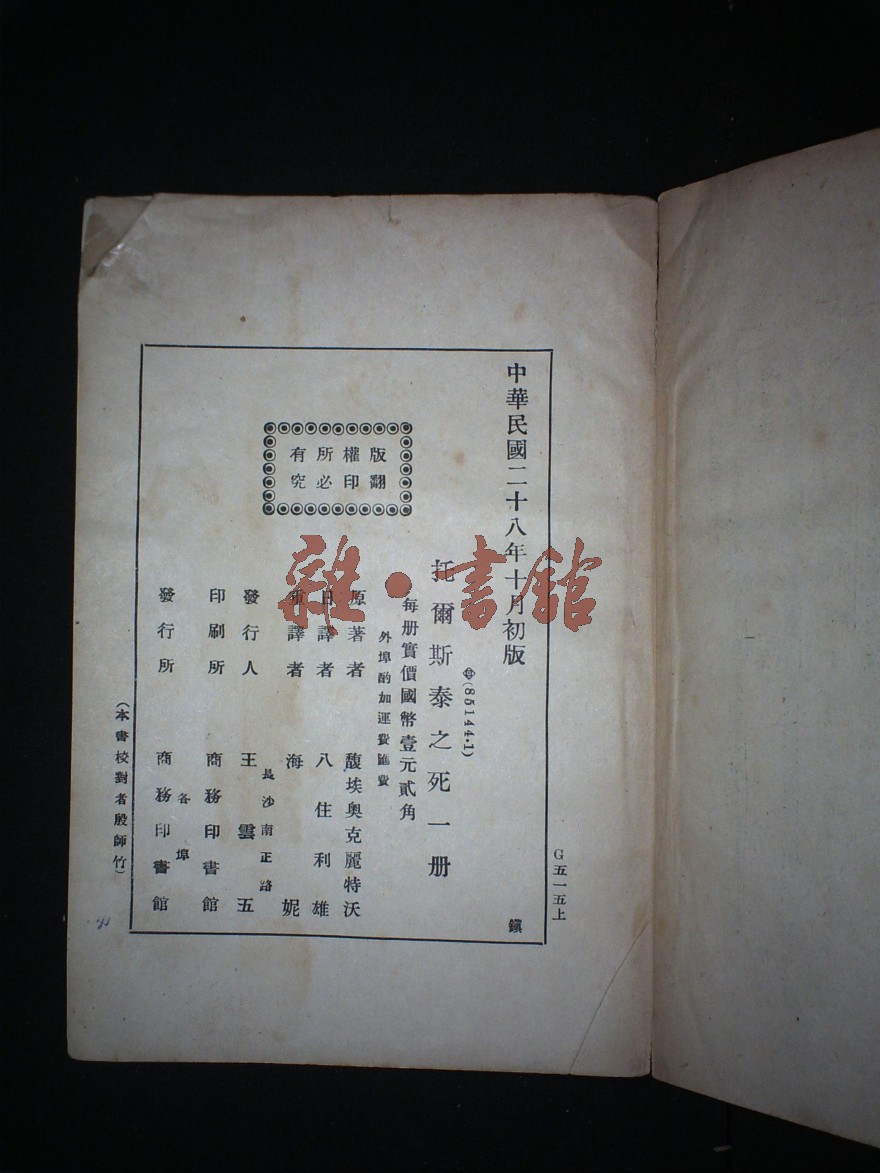 中華民國二十八年十月初版
(85144·1)
托爾斯泰之死一册
每册實價國幣壹元貳角
外埠酌加運費匯費
版權所有
翻印必究
原著者 馥埃奥克麗特沃
日譯者 八住利雄
重譯者 海妮
發行人 王雲五
長沙南正路
印刷所 商務印書館
各埠
發行所 商務印書館
(本書校對者殷師竹)
G五一五上
鎭
雜·書館